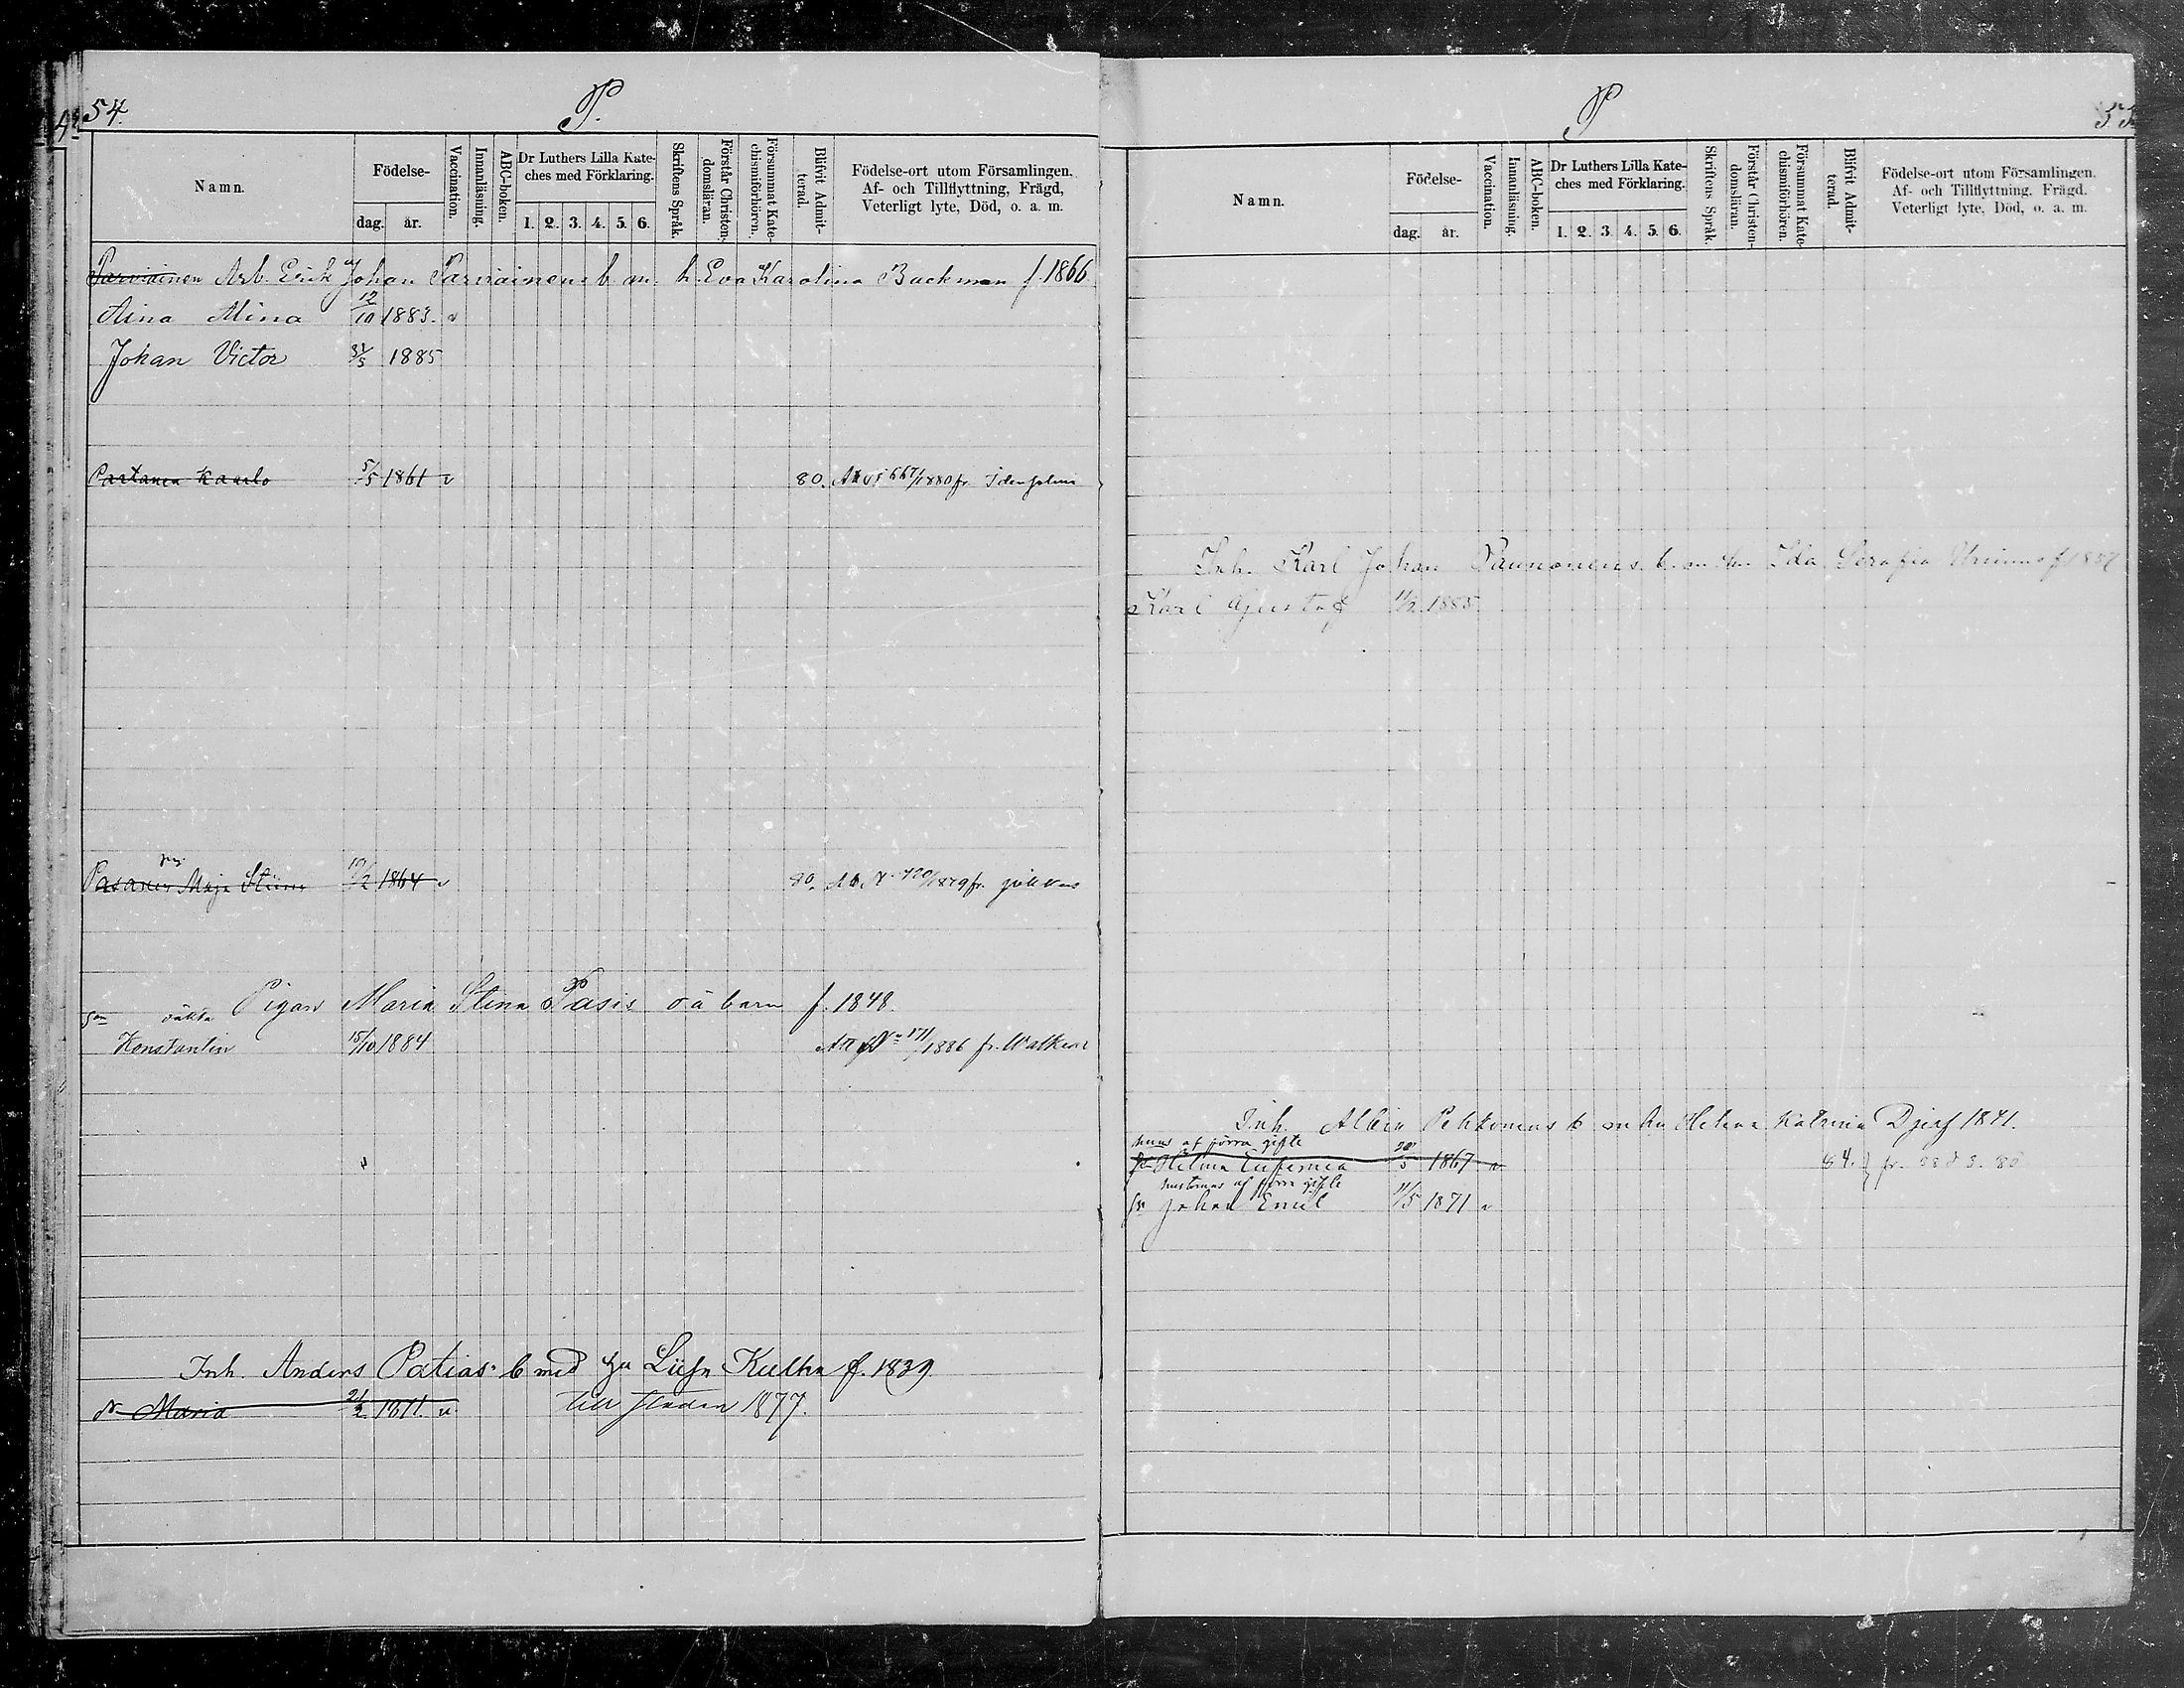 54.
P.
Namn.
Födelse-
dag. år.
Vaccination.
Innanläsning.
ABC-boken.
Dr Luthers Lilla Kate-
ches med Förklaring.
1. 2. 3. 4. 5. 6.
Skriftens Språk.
Förstår Christen-
domsläran.
Försummat Kate-
chismiförhören.
Blifvit Admit-
terad.
Födelse-ort utom Församlingen.
Af- och Tillflyttning, Frägd,
Veterligt lyte, Död, o. a. m.
Parviainen Arb. Erik Johan Parviainens b. m. h. Eva Karolina Backman f. 1866
Aina Mina 12/10 1883. v
Johan Victor 31/5 1885
Partanen Kaarlo 5/5 1861 v 80. 1880 fr.
Pasanen Maja Stina 1864 v 80. 1879 fr.
Pigan Maria Stina Pasis o ä barn f. 1848.
son oäkta
Konstantin 15/10 1884 171/1886 fr.
Inh. Anders Patias b med hu Liisa f. 1839.
dr Maria 21/2 till staden 1877.
P
Namn.
Födelse-
dag. år.
Vaccination.
Innanläsning.
ABC-boken.
Dr Luthers Lilla Kate-
ches med Förklaring.
1. 2. 3. 4. 5. 6.
Skriftens Språk.
Förstår Christen-
domsläran.
Försummat Kate-
chismiförhören.
Blifvit Admit-
terad.
Födelse-ort utom Församlingen.
Af- och Tillflyttning. Frägd.
Veterligt lyte, Död, o. a. m.
Inh. Karl Johan Paunonens b. m. hu Ida Serafia
Karl Gustaf 11/2 1885
Inh. Albin Pehkonens b m hu Helena Katrina 1841.
hans af förra gifte
Hilma Eufemia 20/5 1867 v 84. fr.
hustruns af förra gifte
sn Johan Emil 11/5 1871 v